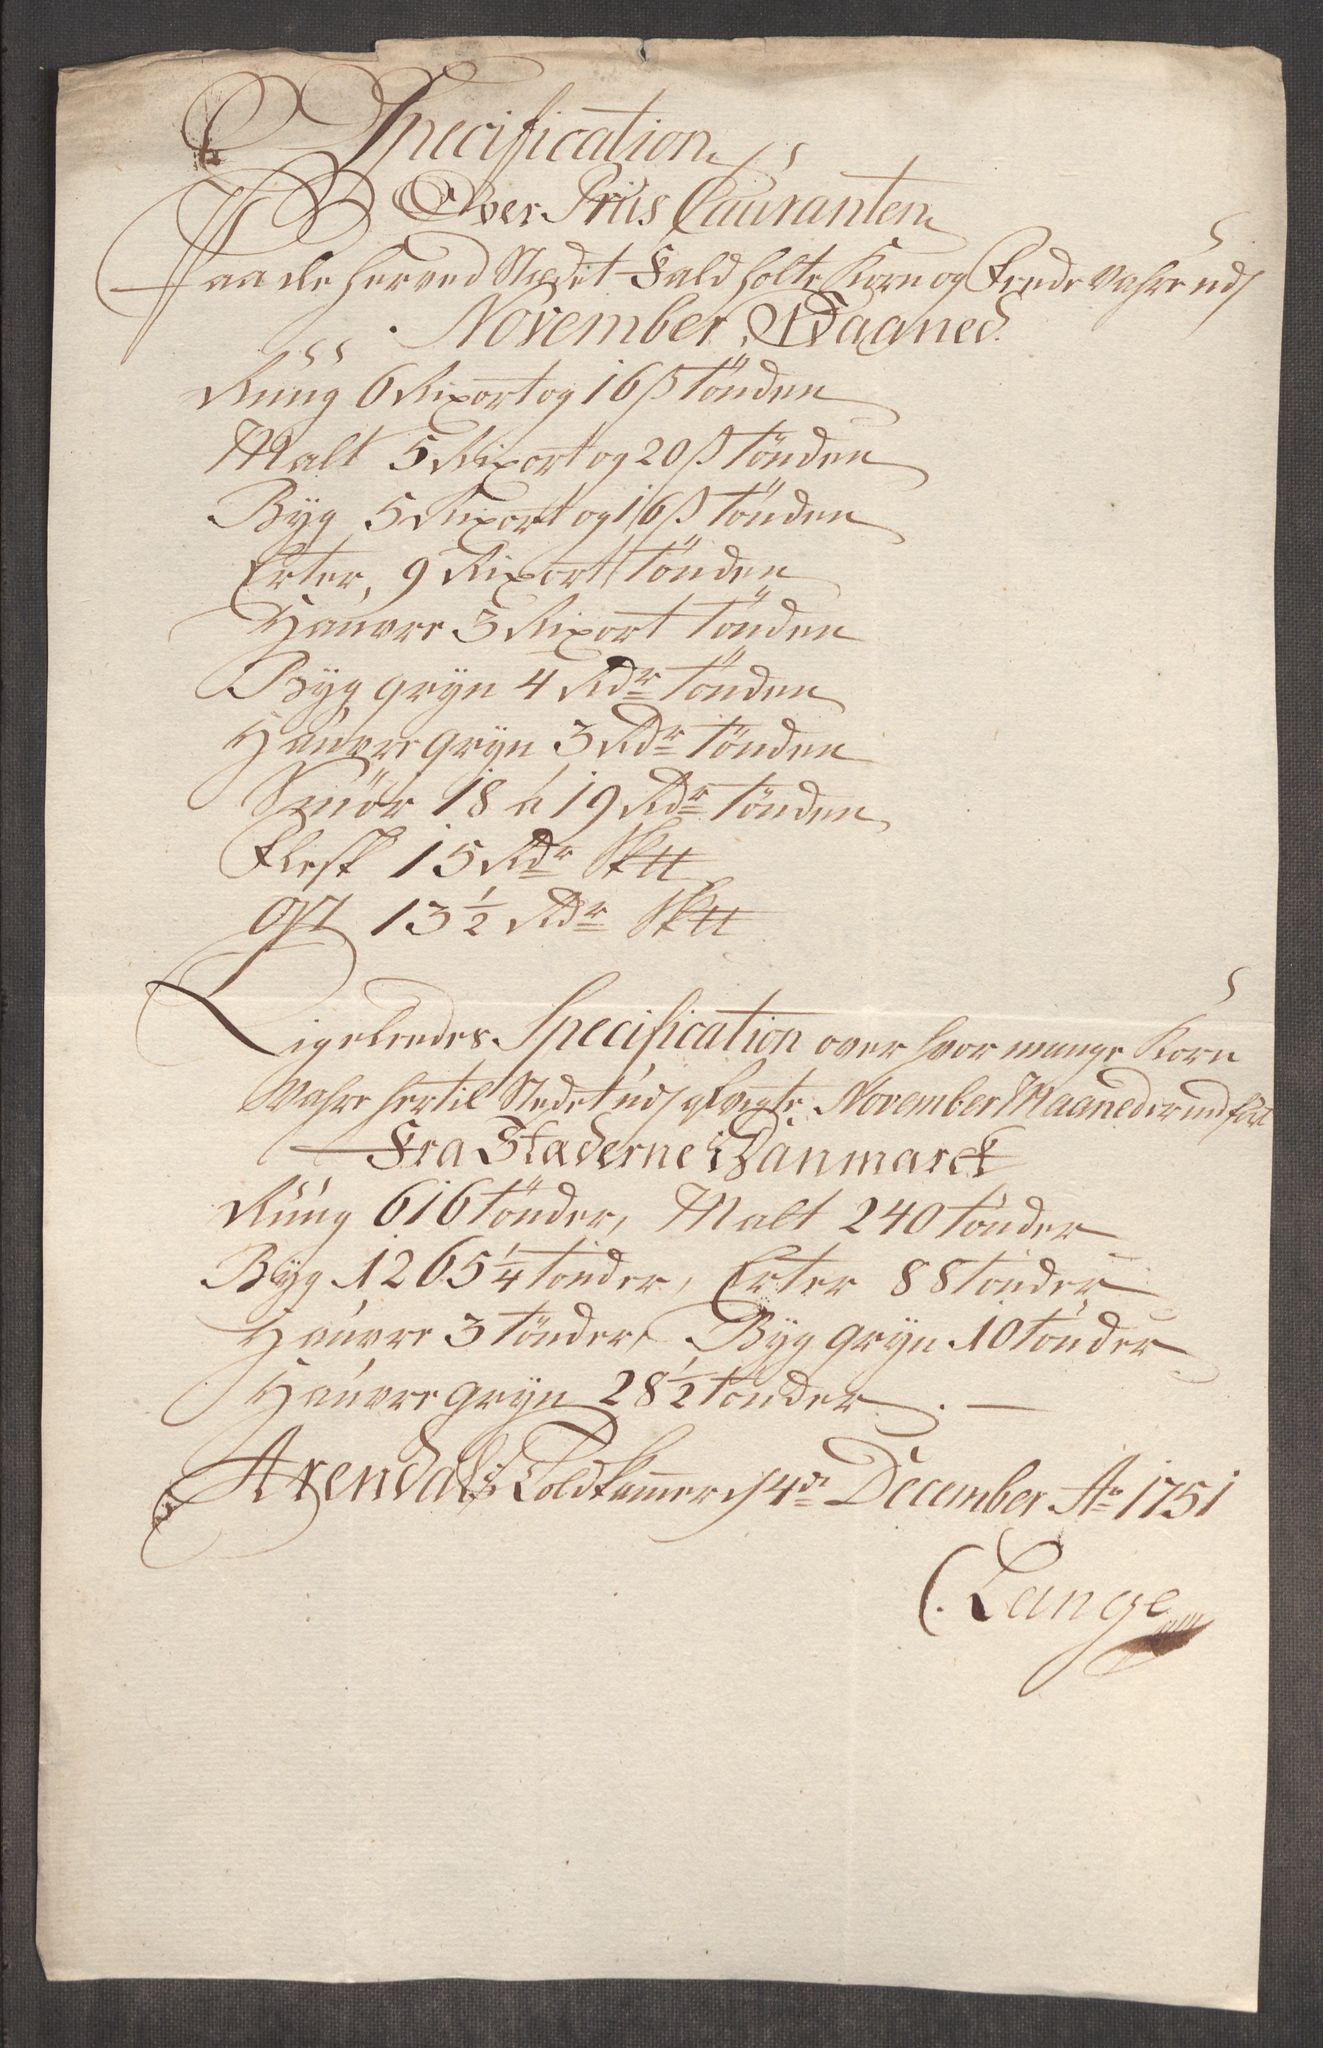 Specification
Over Priis Couranten
Paa de herved Stædet Faldholte Korn og Fende Vahre udj
November Maaned
Rüüg 6 Rixort og 16 ß tönden
Malt 5 Rixort og 20 ß tönden
Byg 5 Rixort og 16 ß tönden
Erter, 9 Rixort tönden
Hauvre 3 Rixort tönden
Byg gryn 4 Rdr tönden
Hauvre gryn 3 Rdr tönden
Smör 18 a 19 Rdr tönden
Flesk 15 Rdr Sk℔
Ost 13½ Rdr Sk℔
Ligeleedes Specification over hvor mange Korn
Vahre hertil Stedet udj November Maaned er ind fört
Fra Stæderne i Danmarck
Rüüg 616 tönder, Malt 240 tönder
Byg 1265¼ tönder, Erter 88 tönder
Hauvre 3 tönder, Byg gryn 10 tönder
Hauvre gryn 28½ tönder. —
Arendals Toldkammer d 4de December Ao 1751
C. Lange